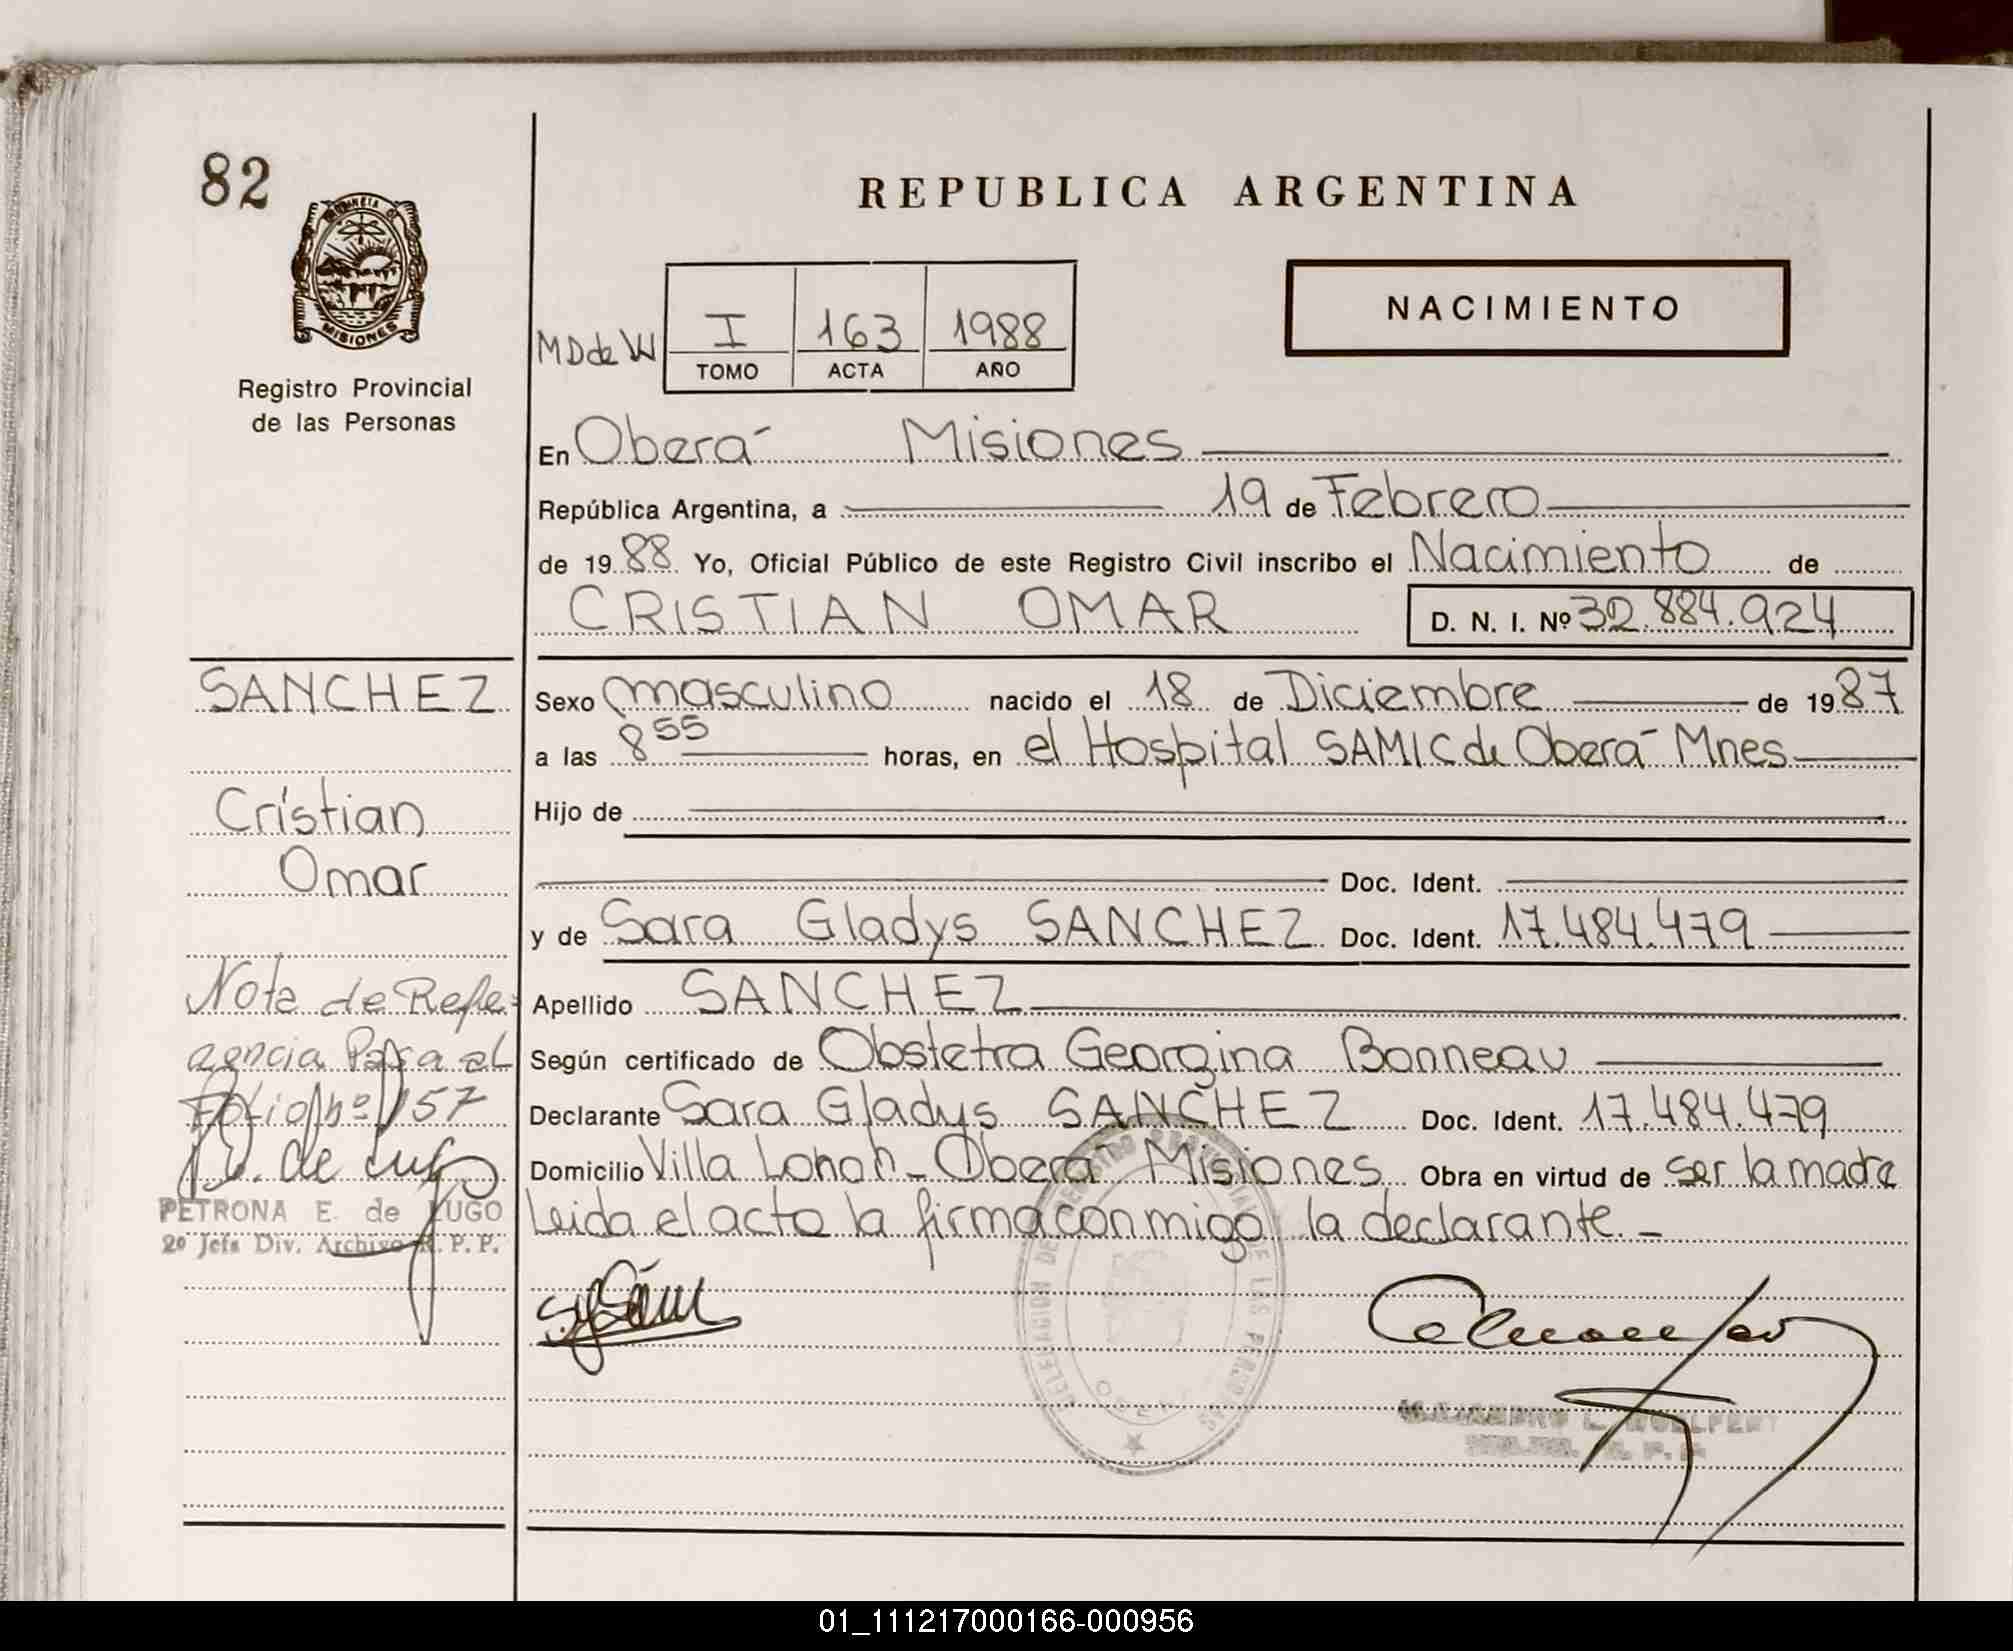 82
PROVINCIA DE
MISIONES
Registro Provincial
de las Personas
REPUBLICA ARGENTINA
NACIMIENTO
MD de W
I 163 1988
TOMO ACTA AÑO
En Oberá Misiones
República Argentina, a 19 de Febrero
de 1988 Yo, Oficial Público de este Registro Civil inscribo el Nacimiento de
CRISTIAN OMAR D. N. I. Nº 32.884.924
SANCHEZ
Cristian
Omar
Nota de Refe-
rencia Para el
Folio Nº 157
PETRONA E. de LUGO
2º Jefa Div. Archivo R. P. P.
Sexo masculino nacido el 18 de Diciembre de 1987
a las 8 55 horas, en el Hospital SAMIC de Oberá Mnes
Hijo de
Doc. Ident.
y de Sara Gladys SANCHEZ Doc. Ident. 17.484.479
Apellido SANCHEZ
Según certificado de Obstetra Georgina Bonneau
Declarante Sara Gladys SANCHEZ Doc. Ident. 17.484.479
Domicilio Villa Lohoh - Oberá Misiones Obra en virtud de ser la madre
Leida el acta la firma conmigo la declarante.-
DELEGACION DEL REGISTRO PROVINCIAL DE LAS PERSONAS
OBERA
01_111217000166-000956